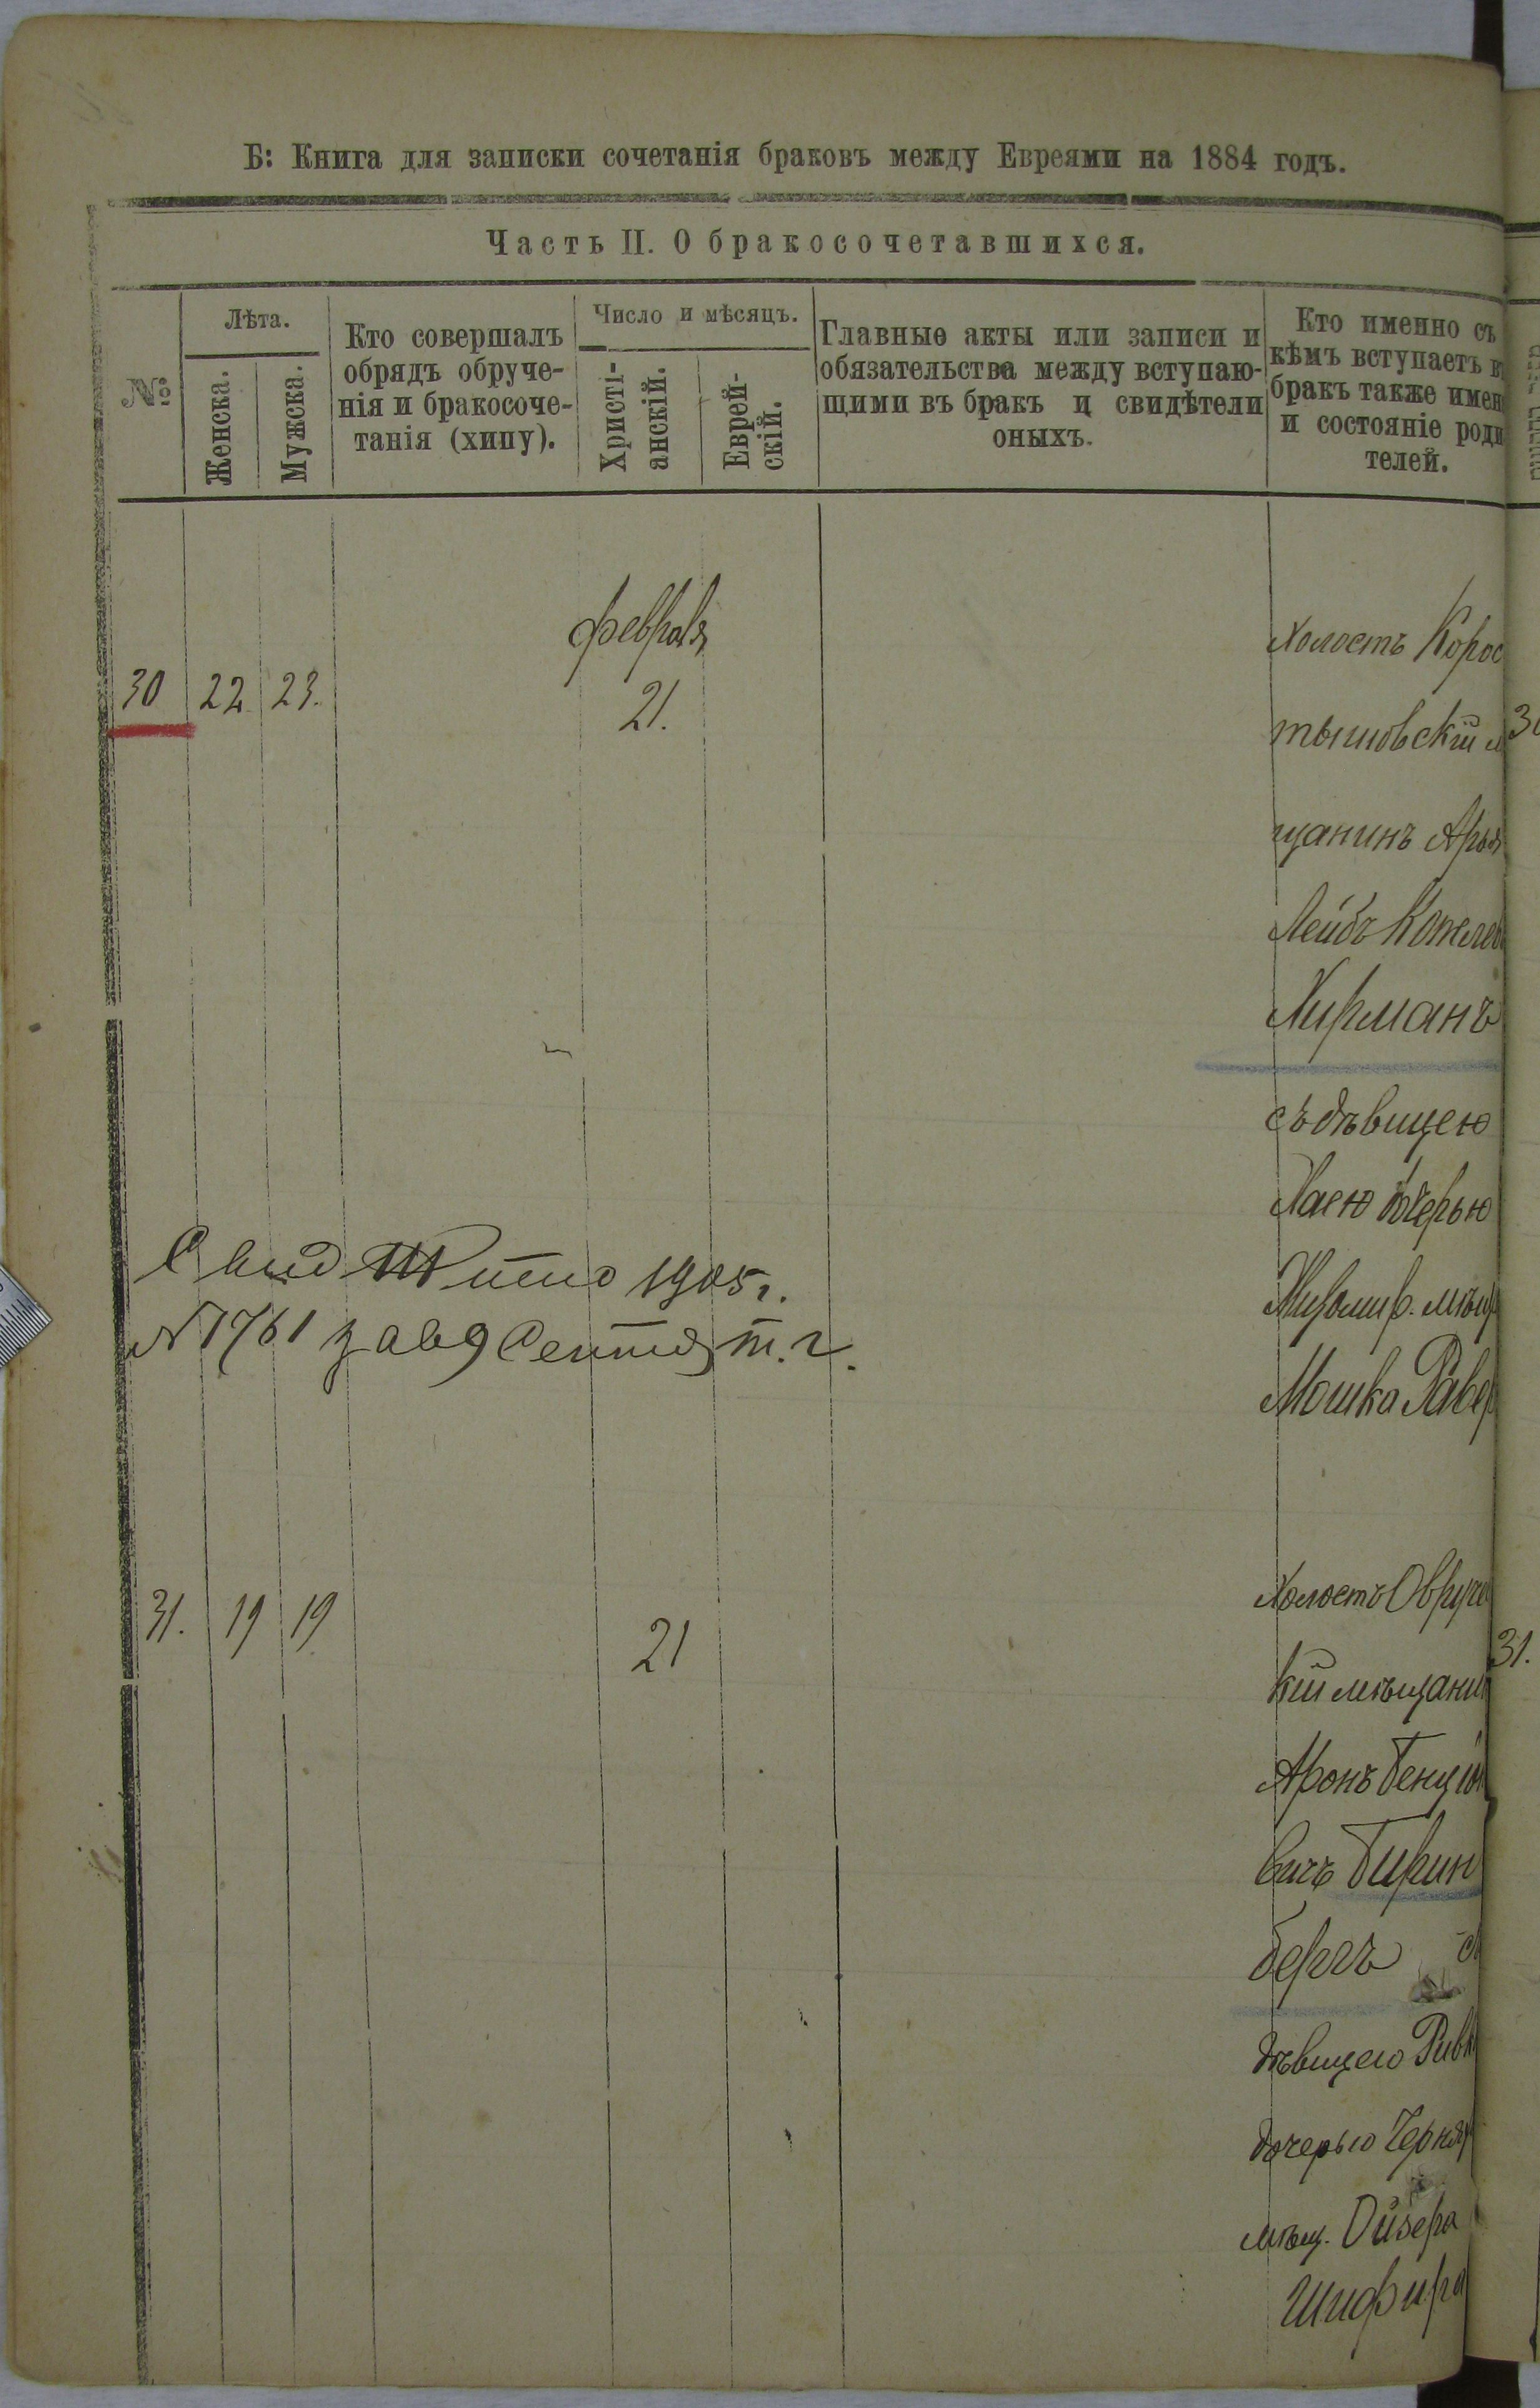 Б: Книга для записки сочетанія браковъ между Евреями на 1884 годъ.
Часть II. О бракосочетавшихся.
№
Лѣта.
Женска.
Мужска.
Кто совершалъ
обрядъ обруче-
нія и бракосоче-
танія (хипу).
Число и мѣсяцъ.
Христі-
анскій.
Еврей-
скій.
Главные акты или записи и
обязательства между вступаю-
щими въ бракъ и свидѣтели
оныхъ.
Кто именно съ
кѣмъ вступаетъ в
бракъ также имен
и состояніе роди
телей.
февраля
30 22 23. 21.
Холостъ Корос
тышовскій м
щанинъ Арья
Лейбъ
Хирманъ
съ дѣвицею
Хаею дочерью
Житомир. мѣщ
Мошка Равер
Свид 1905 г.
№ 1761 за 9 Сентя т. г.
31. 19 19 21
Холостъ Овруче
кій мѣщанин
Аронъ Бенціон
вичъ Бирин
бергъ с
дѣвицею Ривк
дочерью Черня
мѣщ. Ойзера
Шифира
30
31.